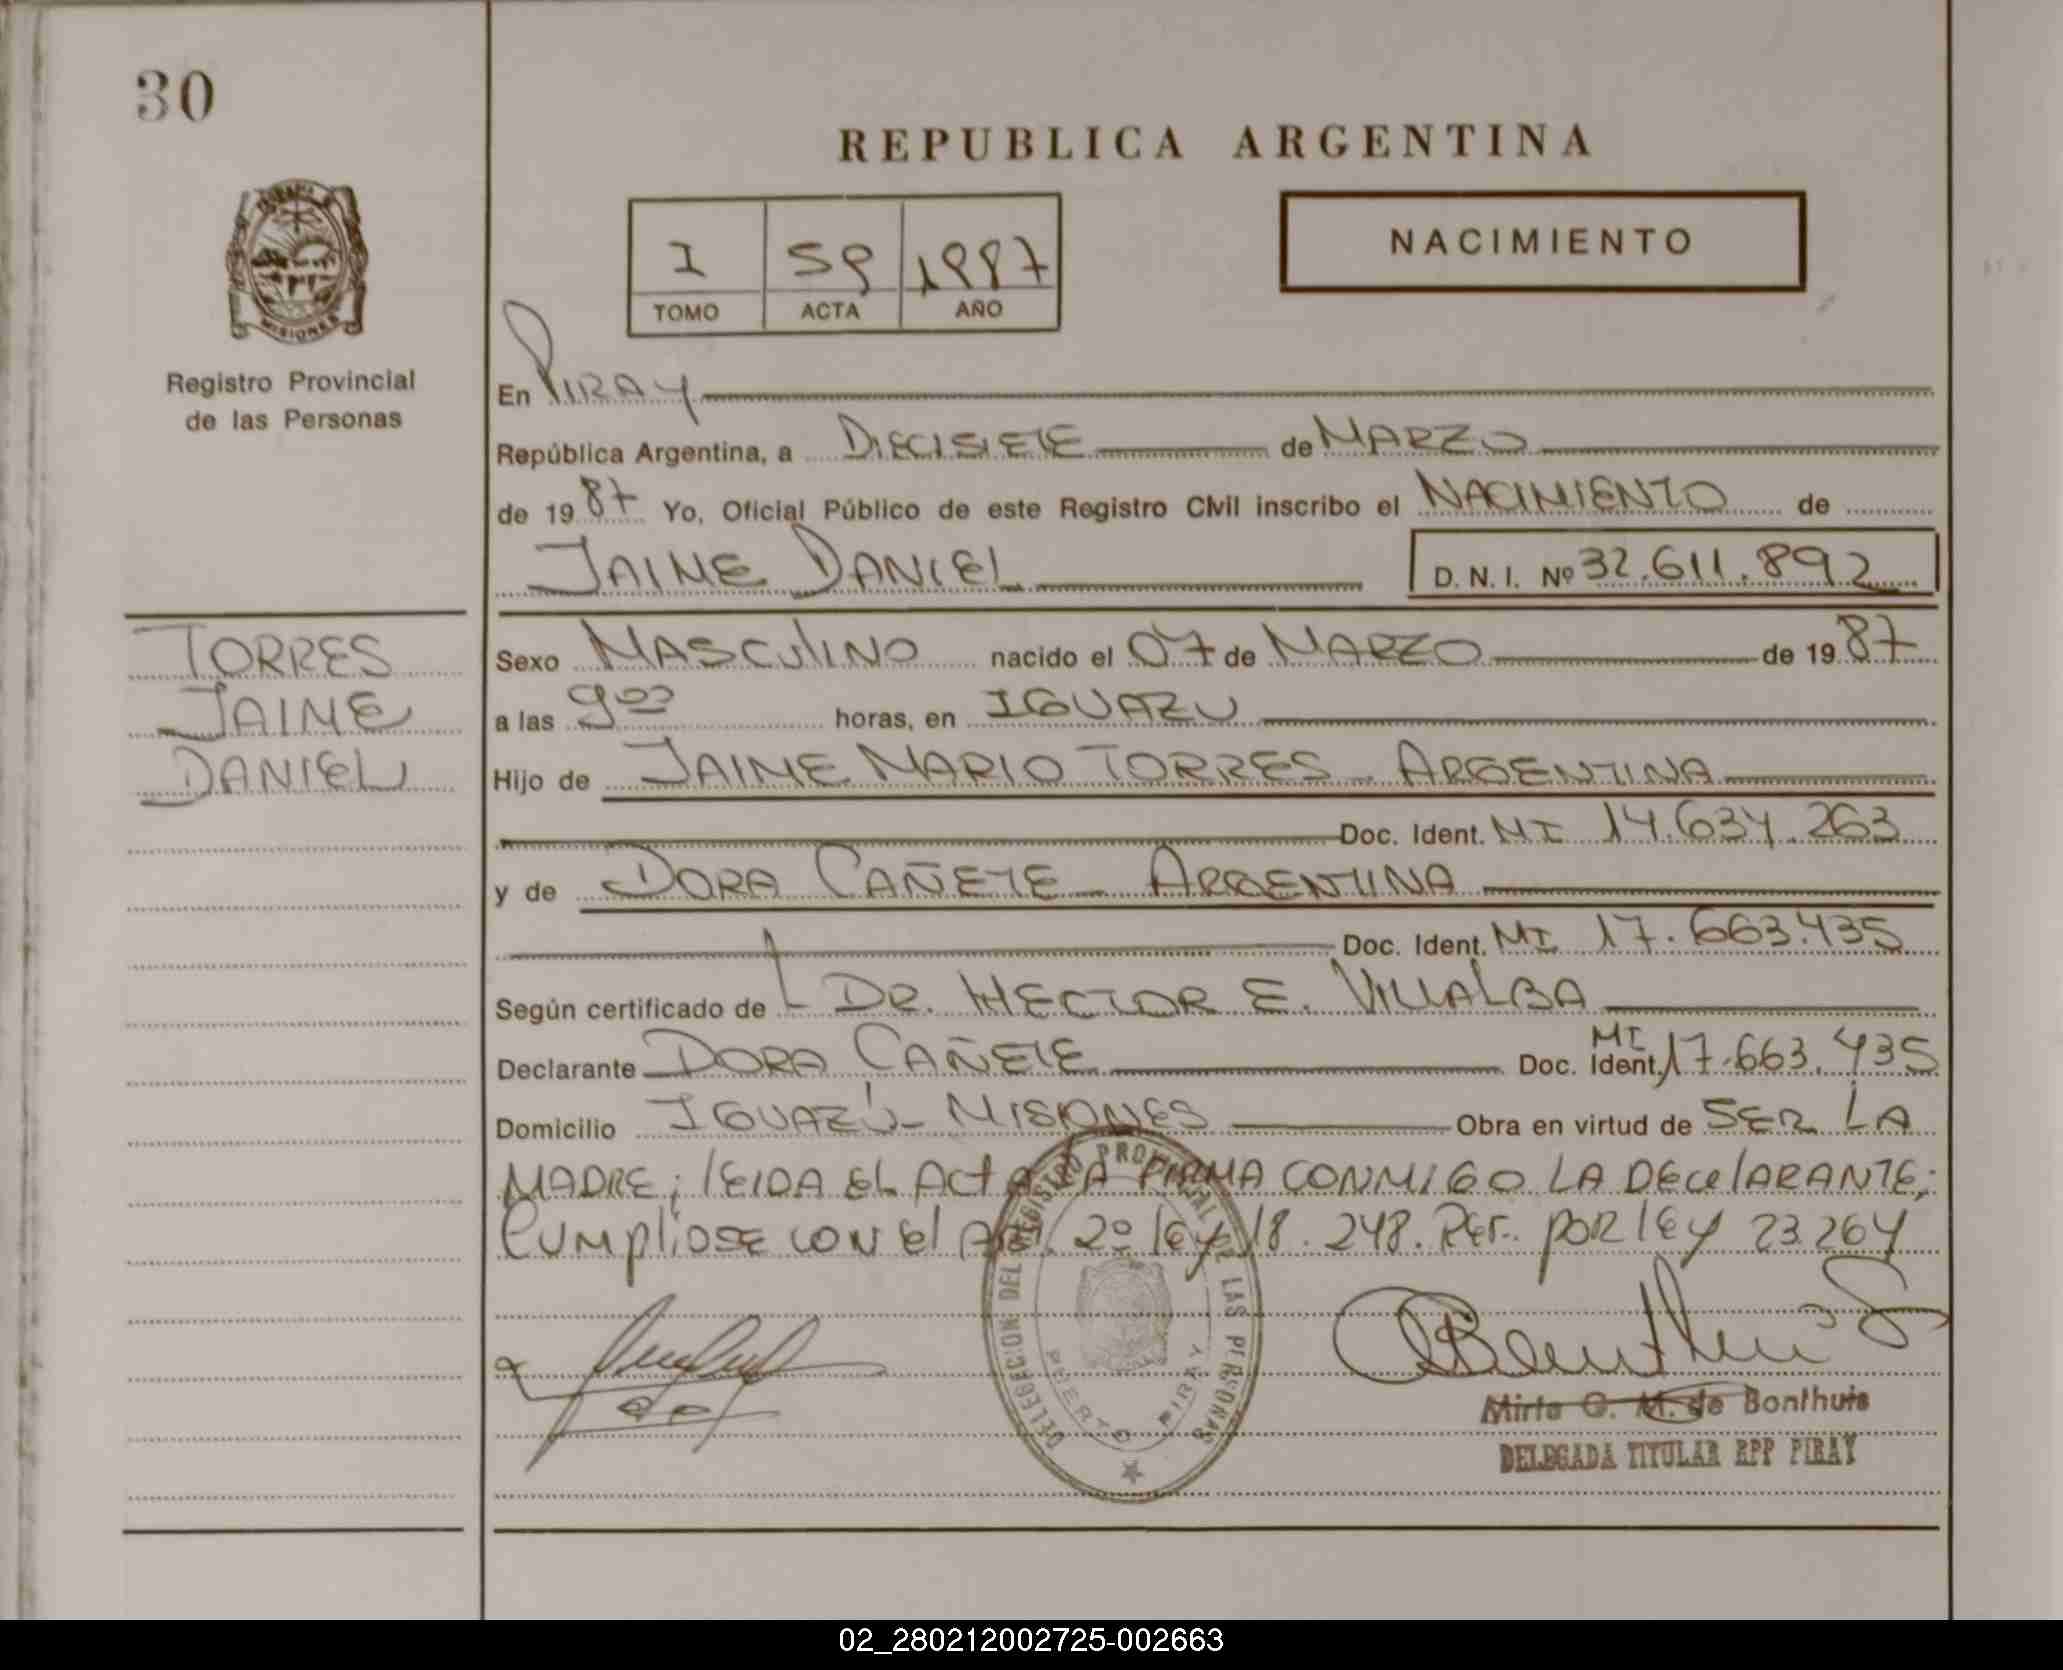 30
REPUBLICA ARGENTINA
NACIMIENTO
I 59 1987
TOMO ACTA AÑO
MISIONES
Registro Provincial
de las Personas
En PIRAY
República Argentina, a DIECISIETE de MARZO
de 1987 Yo, Oficial Público de este Registro Civil inscribo el NACIMIENTO de
JAIME DANIEL D. N. I. Nº 32.611.892
TORRES
JAIME
DANIEL
Sexo MASCULINO nacido el 07 de MARZO de 1987
a las 9 00 horas, en IGUAZU
Hijo de JAIME MARIO TORRES - ARGENTINA
Doc. Ident. MI 14.634.263
y de DORA CAÑETE - ARGENTINA
Doc. Ident. MI 17.663.435
Según certificado de DR. HECTOR E. VILLALBA
Declarante DORA CAÑETE Doc. Ident. MI 17.663.435
Domicilio IGUAZÚ - MISIONES Obra en virtud de SER LA
MADRE; LEIDA EL ACTA LA FIRMA CONMIGO LA DECLARANTE;
CUMPLIOSE CON El ART. 2º lEy 18.248. REF. POR lEy 23.264
DELEGACION DEL REGISTRO PROVINCIAL DE LAS PERSONAS
PUERTO PIRAY
Mirta G. M. de Bonthuis
DELEGADA TITULAR RPP PIRAY
02_280212002725-002663